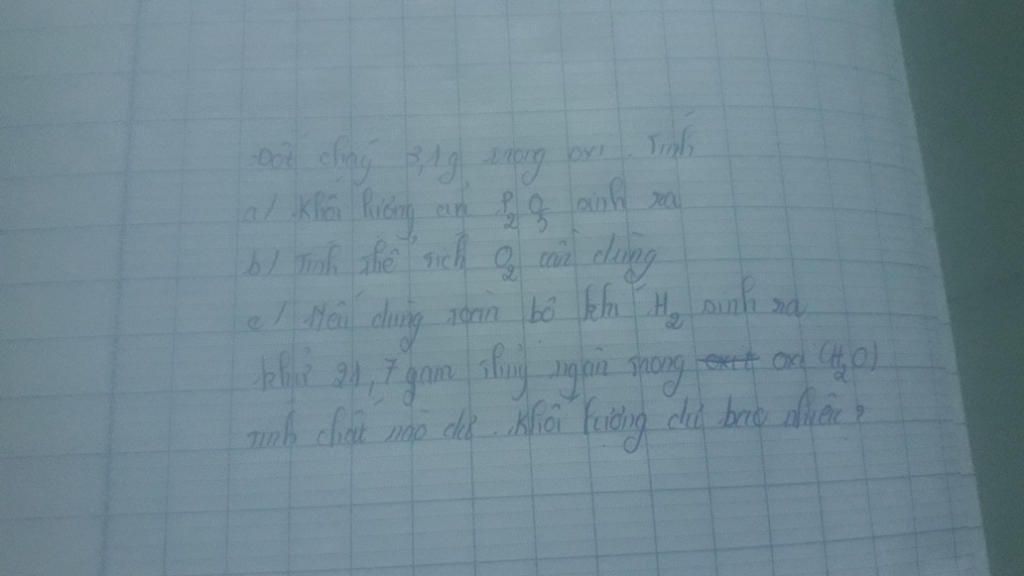 Đốt cháy 3,1g trong oxi. Tính
a) Khối lượng P₂O₅ sinh ra
b) Tính thể tích O₂ cần dùng
c) Nếu dùng toàn bộ khí H₂ sinh ra
khử 21,7 gam thủy ngân trong oxi (H₂O)
tính chất nào dư. Khối lượng dư bao nhiêu?